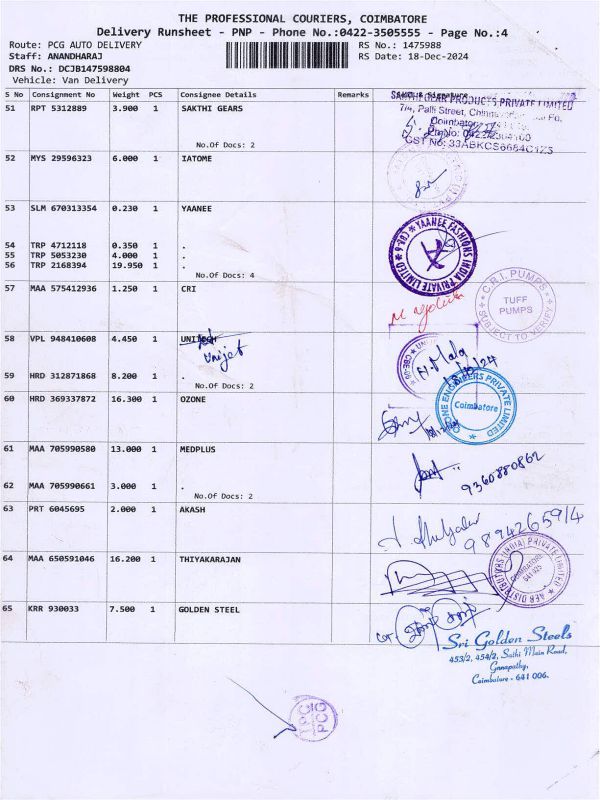 THE PROFESSIONAL COURIERS, COIMBATORE
Delivery Runsheet - PNP - Phone No.:0422-3505555 - Page No.:4
Route: PCG AUTO DELIVERY
RS No.: 1475988
Staff: ANANDHARAJ
RS Date: 18-Dec-2024
DRS No.: DCJB147598804
Vehicle: Van Delivery
S No Consignment No Weight PCS Consignee Details Remarks
51 RPT 5312889 3.900 1 SAKTHI GEARS
No.Of Docs: 2
SAKTHI GEAR PRODUCTS PRIVATE LIMITED
7/4, Palli Street,
Coimbatore
GST No: 33ABKCS6684C1Z5
52 MYS 29596323 6.000 1 IATOME
53 SLM 670313354 0.230 1 YAANEE
YAANEE FASHIONS INDIA PRIVATE LIMITED
54 TRP 4712118 0.350 1 .
55 TRP 5053230 4.000 1 .
56 TRP 2168394 19.950 1 .
No.Of Docs: 4
57 MAA 575412936 1.250 1 CRI
C.R.I. PUMPS
TUFF
PUMPS
SUBJECT TO VERIFY
58 VPL 948410608 4.450 1 UNITECH
Unijet
N. Mala
59 HRD 312871868 8.200 1 .
60 HRD 369337872 16.300 1 OZONE
OZONE ENGINEERS PRIVATE LIMITED
Coimbatore
61 MAA 705990580 13.000 1 MEDPLUS
9360880862
62 MAA 705990661 3.000 1 .
No.Of Docs: 2
63 PRT 6045695 2.000 1 AKASH
9894265914
64 MAA 650591046 16.200 1 THIYAKARAJAN
AER DISTRIBUTORS (INDIA) PRIVATE LIMITED
COIMBATORE
65 KRR 930033 7.500 1 GOLDEN STEEL
Sri Golden Steels
453/2, 454/2, Sathi Main Road,
Ganapathy,
Coimbatore - 641 006.
PCG